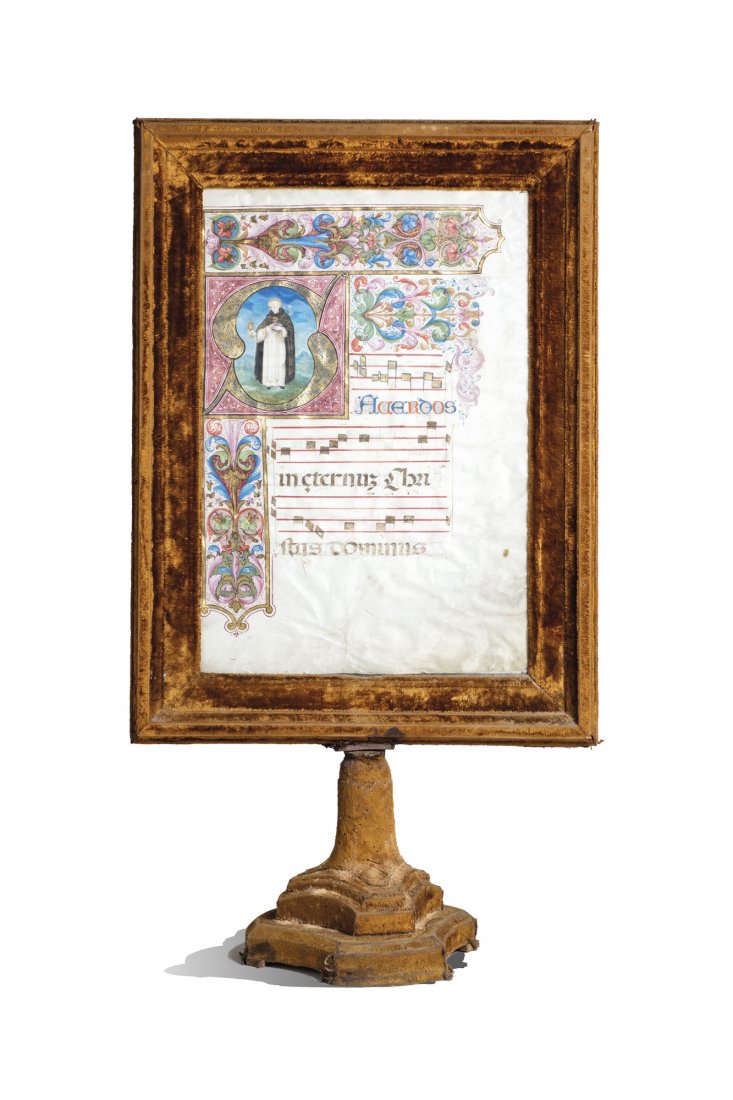 SACERDOS
in ęternuʒ Chri
stus Dominus